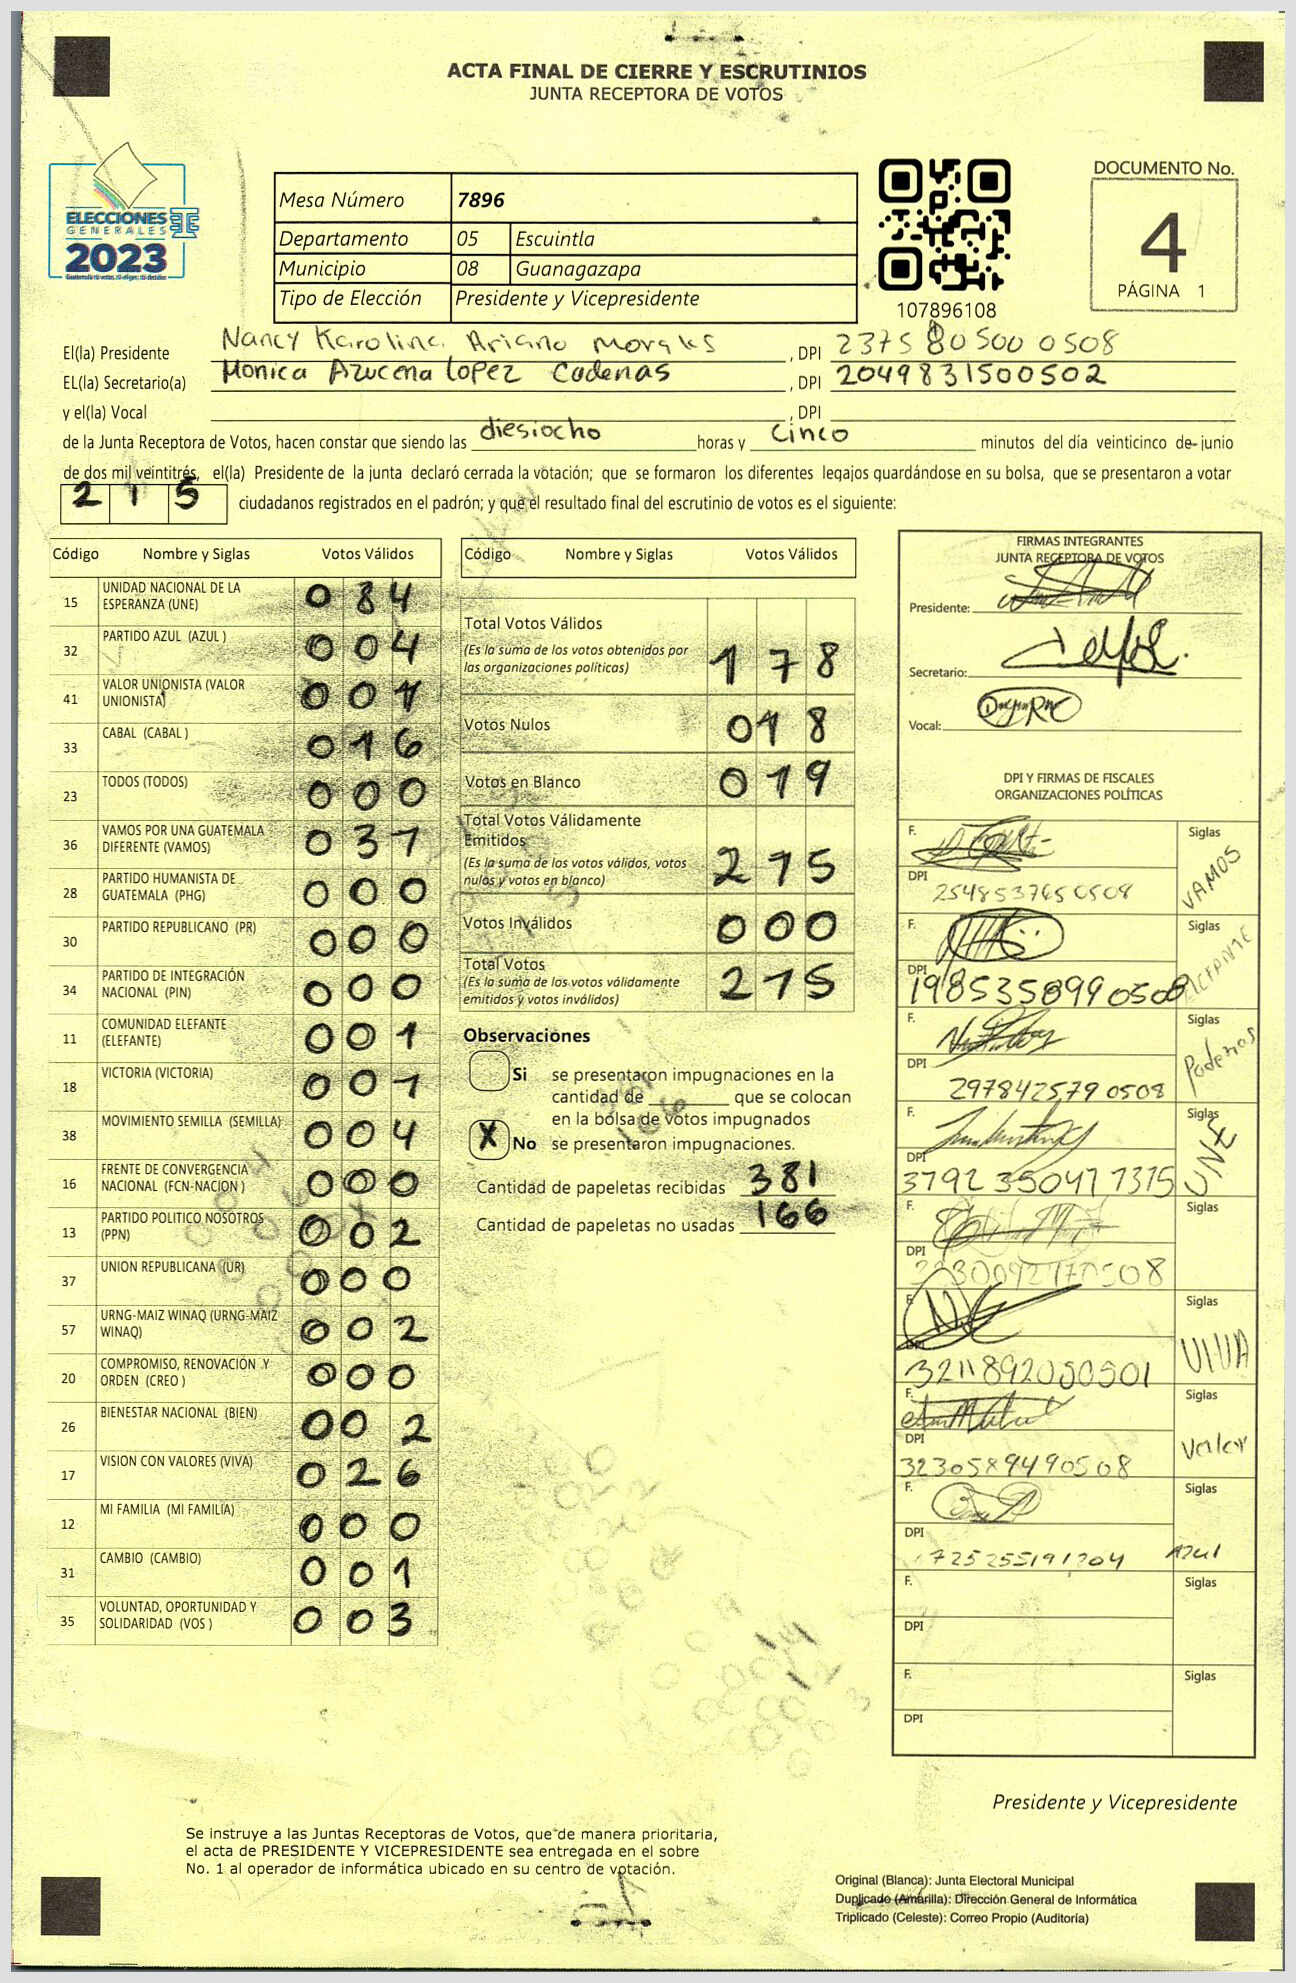 ACTA FINAL DE CIERRE Y ESCRUTINIOS
JUNTA RECEPTORA DE VOTOS
ELECCIONES
GENERALES
2023
Mesa Número 7896
Departamento 05 Escuintla
Municipio 08 Guanagazapa
Tipo de Elección Presidente y Vicepresidente
107896108
DOCUMENTO No.
4
PÁGINA 1
El(la) Presidente Nancy Karolina Ariano Morales , DPI 2375805000508
EL(la) Secretario(a) Monica Azucena Lopez Cadenas , DPI 2049831500502
y el(la) Vocal , DPI
de la Junta Receptora de Votos, hacen constar que siendo las diesiocho horas y cinco minutos del día veinticinco de junio
de dos mil veintitrés, el(la) Presidente de la junta declaró cerrada la votación; que se formaron los diferentes legajos guardándose en su bolsa, que se presentaron a votar
215 ciudadanos registrados en el padrón; y que el resultado final del escrutinio de votos es el siguiente:
Código Nombre y Siglas Votos Válidos
15 UNIDAD NACIONAL DE LA ESPERANZA (UNE) 084
32 PARTIDO AZUL (AZUL ) 004
41 VALOR UNIONISTA (VALOR UNIONISTA) 001
33 CABAL (CABAL ) 016
23 TODOS (TODOS) 000
36 VAMOS POR UNA GUATEMALA DIFERENTE (VAMOS) 031
28 PARTIDO HUMANISTA DE GUATEMALA (PHG) 000
30 PARTIDO REPUBLICANO (PR) 000
34 PARTIDO DE INTEGRACIÓN NACIONAL (PIN) 000
11 COMUNIDAD ELEFANTE (ELEFANTE) 001
18 VICTORIA (VICTORIA) 001
38 MOVIMIENTO SEMILLA (SEMILLA) 004
16 FRENTE DE CONVERGENCIA NACIONAL (FCN-NACION ) 000
13 PARTIDO POLITICO NOSOTROS (PPN) 002
37 UNION REPUBLICANA (UR) 000
57 URNG-MAIZ WINAQ (URNG-MAIZ WINAQ) 002
20 COMPROMISO, RENOVACIÓN Y ORDEN (CREO ) 000
26 BIENESTAR NACIONAL (BIEN) 002
17 VISION CON VALORES (VIVA) 026
12 MI FAMILIA (MI FAMILIA) 000
31 CAMBIO (CAMBIO) 001
35 VOLUNTAD, OPORTUNIDAD Y SOLIDARIDAD (VOS ) 003
Código Nombre y Siglas Votos Válidos
Total Votos Válidos
(Es la suma de los votos obtenidos por
las organizaciones políticas) 178
Votos Nulos 018
Votos en Blanco 019
Total Votos Válidamente
Emitidos
(Es la suma de los votos válidos, votos
nulos y votos en blanco) 215
Votos Inválidos 000
Total Votos
(Es la suma de los votos válidamente
emitidos y votos inválidos) 215
Observaciones
Si se presentaron impugnaciones en la
cantidad de ________ que se colocan
en la bolsa de votos impugnados
X No se presentaron impugnaciones.
Cantidad de papeletas recibidas 381
Cantidad de papeletas no usadas 166
FIRMAS INTEGRANTES
JUNTA RECEPTORA DE VOTOS
Presidente:
Secretario:
Vocal:
DPI Y FIRMAS DE FISCALES
ORGANIZACIONES POLÍTICAS
F. Siglas VAMOS
DPI 2548537650508
F. Siglas
DPI 1985358990508
F. Siglas Podemos
DPI 2978425790508
F. Siglas UNE
DPI 3792350471315
F. Siglas
DPI
F. Siglas VIVA
DPI 3211892050501
F. Siglas Valor
DPI 3230589490508
F. Siglas Azul
DPI 1725255191204
F. Siglas
DPI
F. Siglas
DPI
Presidente y Vicepresidente
Se instruye a las Juntas Receptoras de Votos, que de manera prioritaria,
el acta de PRESIDENTE Y VICEPRESIDENTE sea entregada en el sobre
No. 1 al operador de informática ubicado en su centro de votación.
Original (Blanca): Junta Electoral Municipal
Duplicado (Amarilla): Dirección General de Informática
Triplicado (Celeste): Correo Propio (Auditoría)